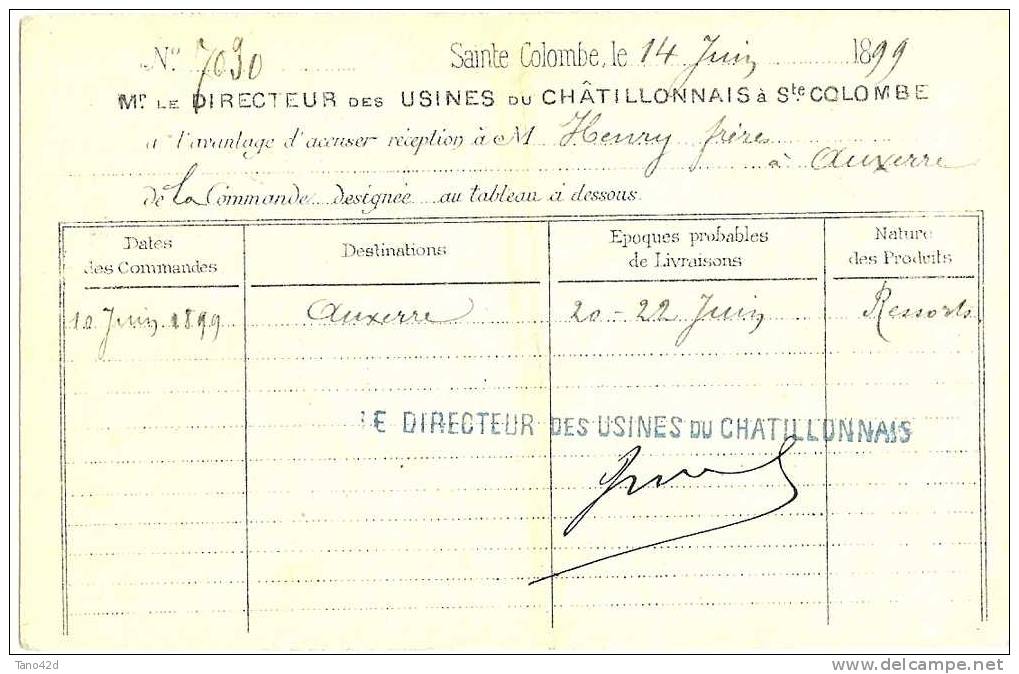 Nº 7090 Sainte Colombe, le 14 Juin 1899
Mr LE DIRECTEUR DES USINES DU CHÂTILLONNAIS à Ste COLOMBE
a l'avantage d'accuser réception à M Henry frères
à Auxerre
de la Commande designée au tableau ci dessous.
Dates des Commandes Destinations Epoques probables de Livraisons Nature des Produits
10 Juin 1899 Auxerre 20-22 Juin Ressorts
LE DIRECTEUR DES USINES DU CHATILLONNAIS
Tano42d delcampe.net